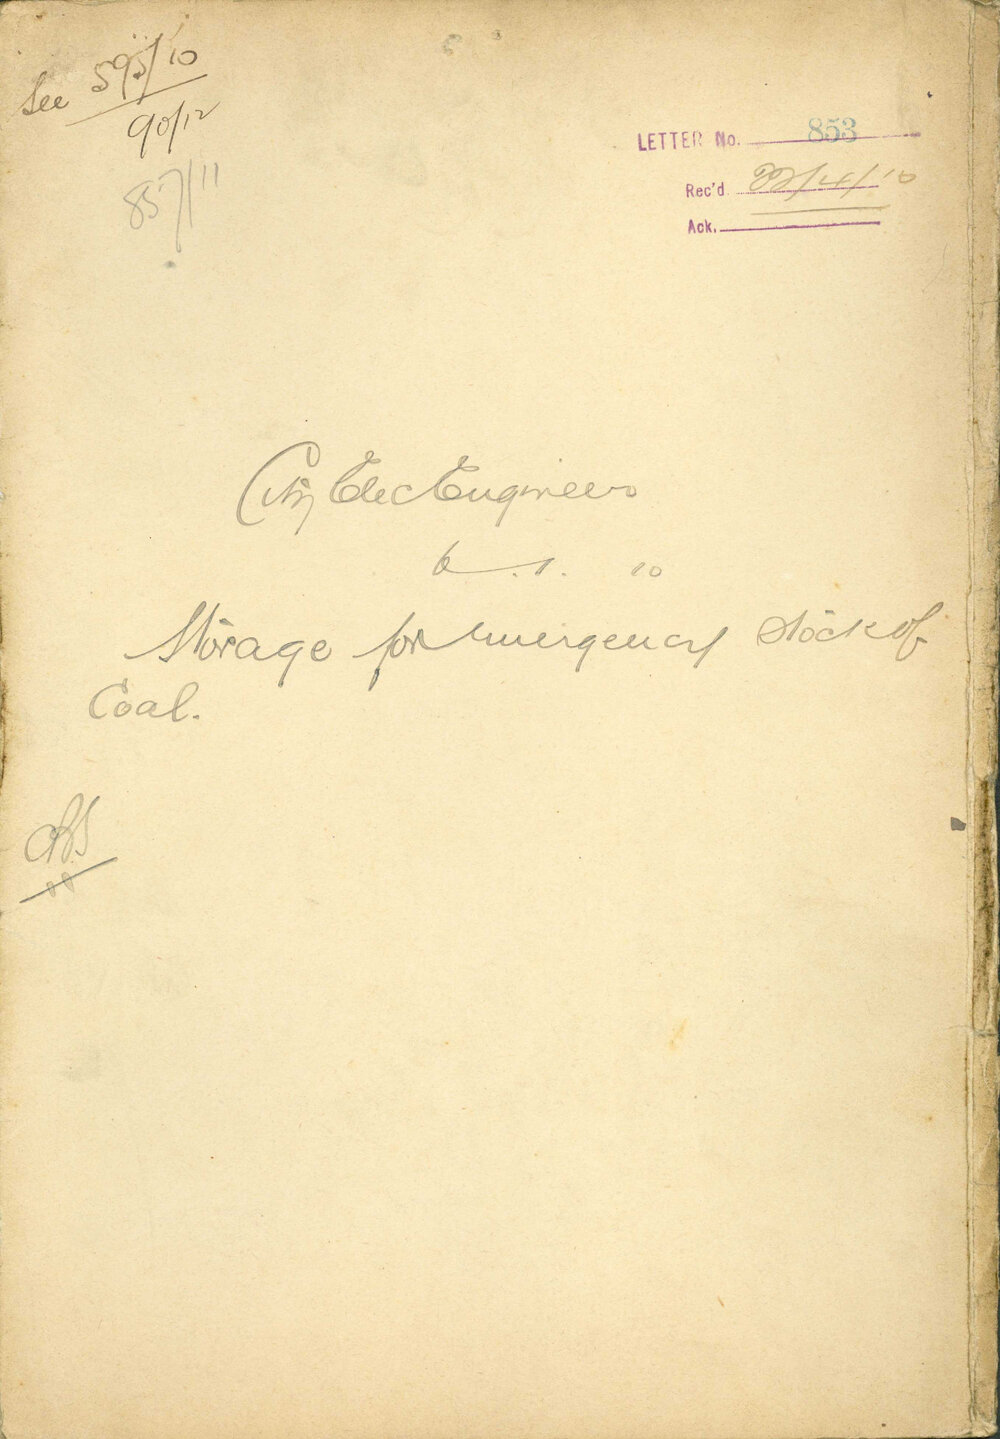 See 595/10
90/12
857/11
LETTER No. 853
Rec'd 22/4/10
Ack.
City Elec Engineer
6.1.10
Storage for Emergency Stock of
Coal.